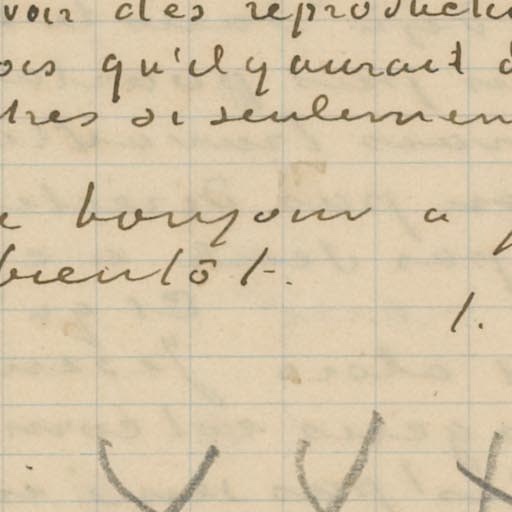 voir des reproducti
ois qu'il y aurait d
tres si seulemen
e bonjour a
bientôt.
t.